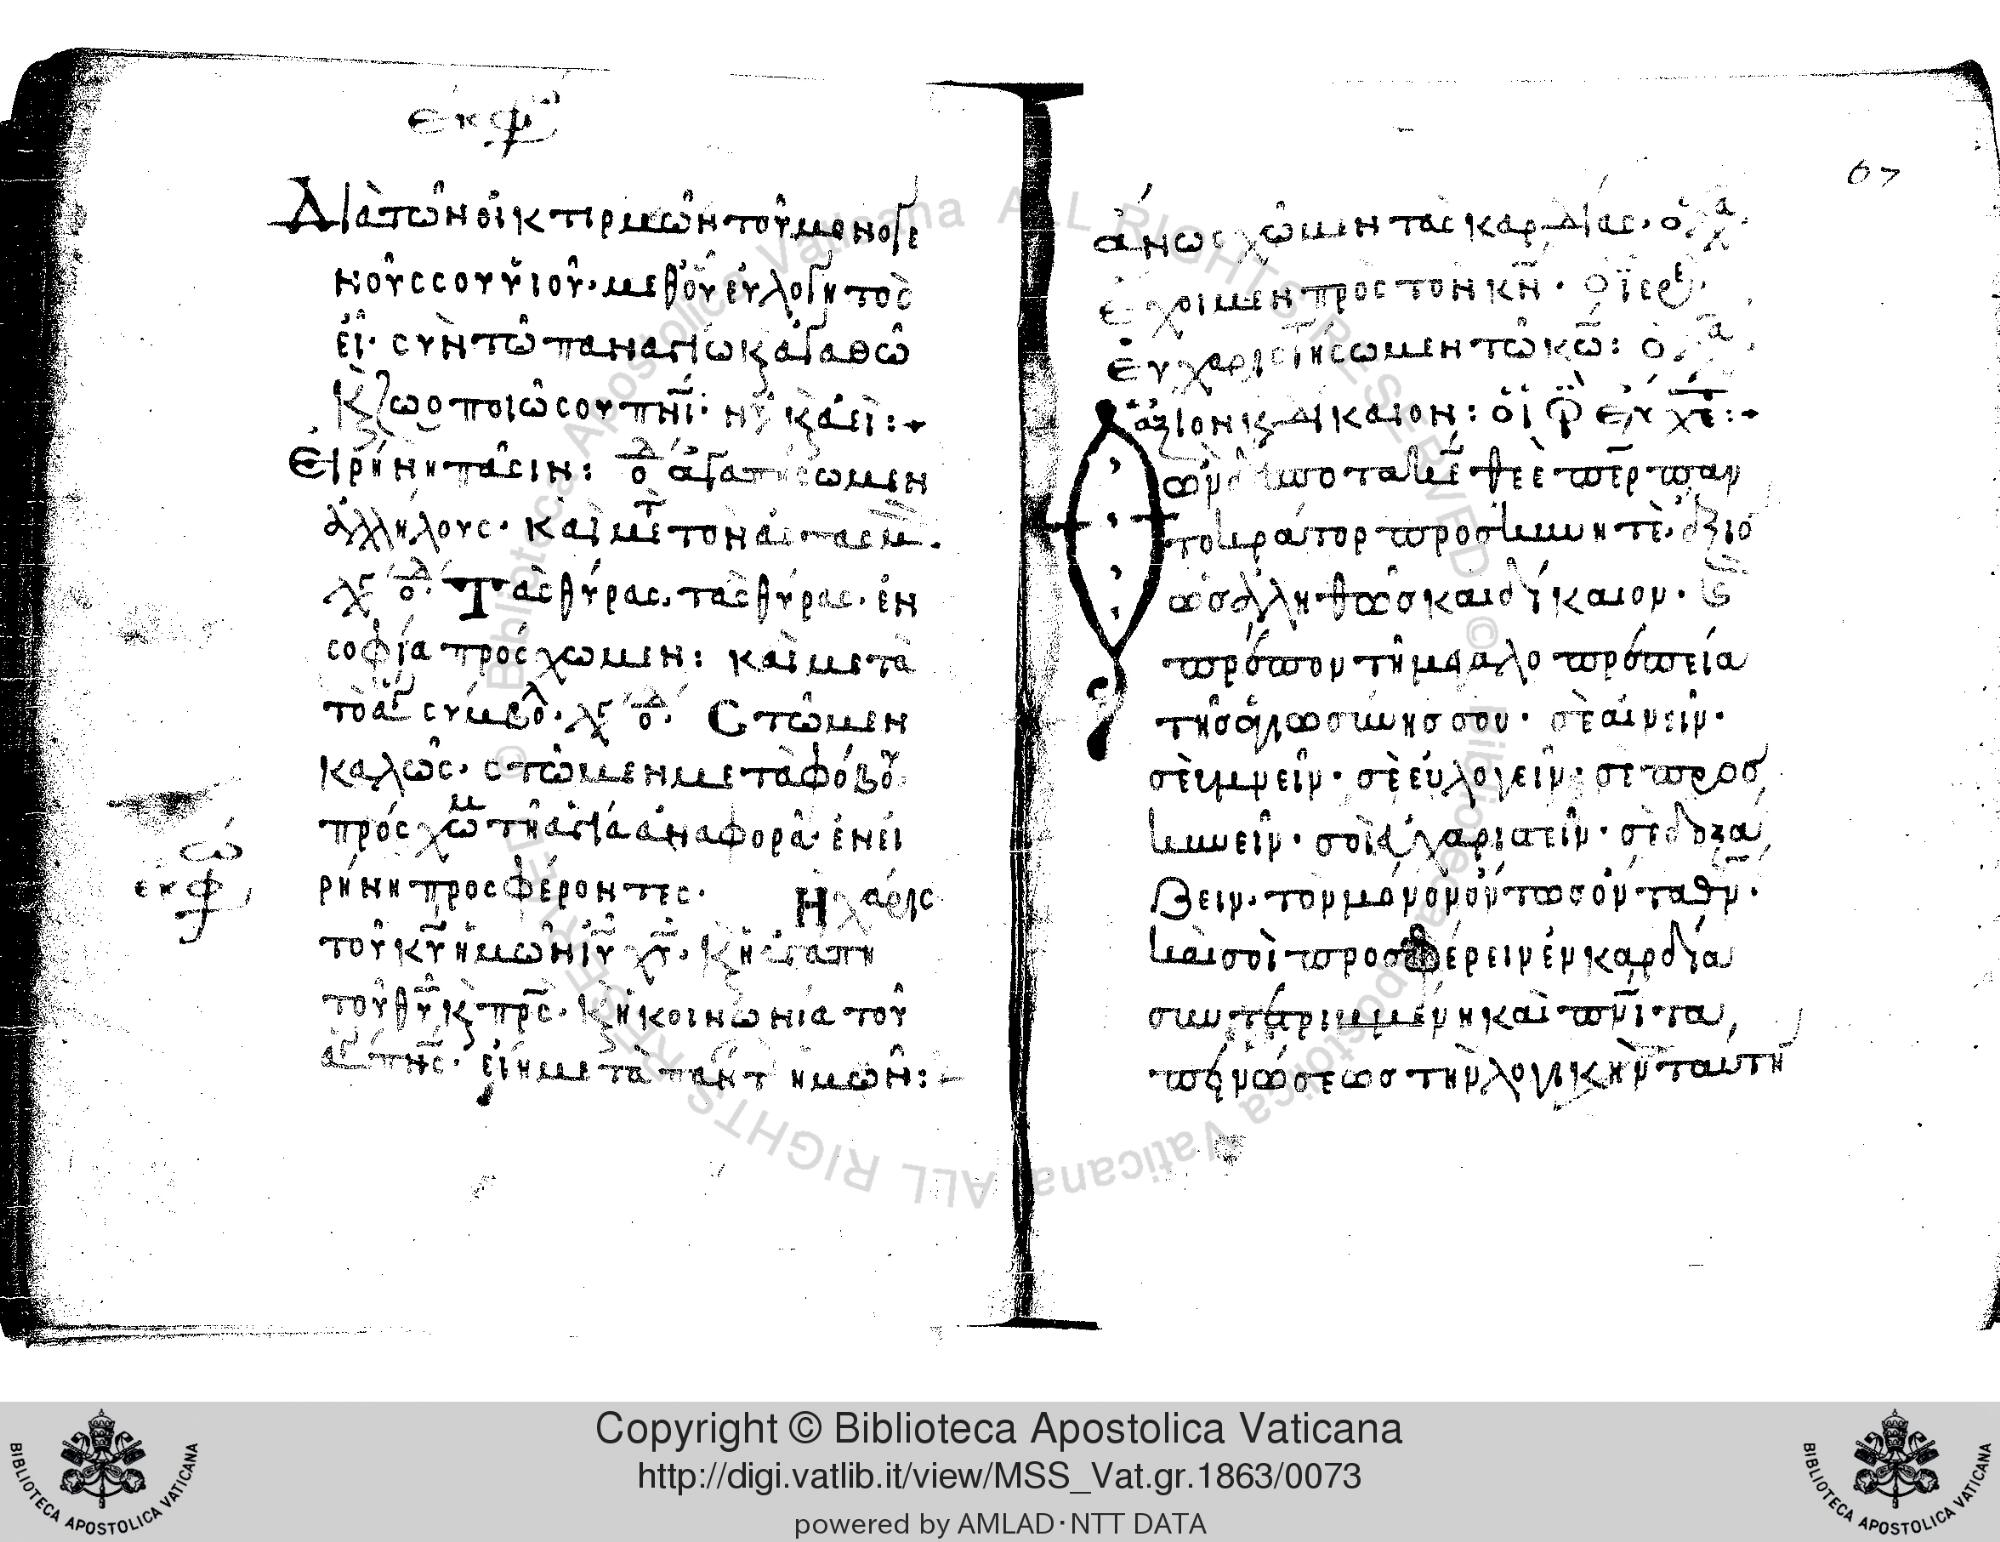 ἐκφω
Διὰ τῶν οἰκτιρμῶν τοῦ μονογε
νοῦς σου υἱοῦ· μεθ' οὗ εὐλογητὸς
εἶ· σὺν τῶ παναγίω κ ἀγαθῶ
κ ζωοποιῶ σου πνι· νῦ κ ἀεὶ :
Εἰρήνη πᾶσιν : ὁ δ ἀγαπήσωμεν
ἀλλήλους· καὶ με τ τὸν ἀσπασμ.
λγ ὁ δ· Τὰς θύρας, τὰς θύρας· ἐν
σοφία πρόσχωμεν : καὶ μετὰ
τὸ ἅγ σύμβολ· λγ ὁ δ· Στῶμεν
καλῶς· στῶμεν μετὰ φόβου
πρόσχωμ τῆ ἁγία ἀναφορᾶ· ἐν εἰ
ρήνη προσφέροντες· Ἡ χάρις
ἐκφω
τοῦ κυ ἡμῶν ιυ χυ· κ ἡ ἀγάπη
τοῦ θυ κ πρς· κ ἡ κοινωνία τοῦ
ἁγ πνς· εἴη μετὰ πάντ ἡμῶν :
67
ἄνω σχῶμεν τὰς καρδίας· ὁ λα·
ἔχομεν πρὸς τὸν κν· ὁ ἱερε·
εὐχαριστήσωμεν τῶ κω : ὁ λα·
ἄξιον κ δίκαιον : ὁ ἱερ ἐπεύχτ :
ὢν δέσποτα κε θεὲ περ παν
τοκράτορ προσκυνητὲ· ἄξιο
ὡς ἀληθῶς καὶ δίκαιον· κ
πρέπον τῆ μεγαλοπρεπεία
τῆς ἁγιωσύνης σου· σὲ αἰνεῖν·
σὲ ὑμνεῖν· σὲ εὐλογεῖν· σὲ προσ
κυνεῖν· σοὶ εὐχαριστεῖν· σὲ δοξά
ζειν· τὸν μόνον ὄντως ὄντα θν·
καὶ σοὶ προσφέρειν ἐν καρδία
συντετριμμένη καὶ πνι τα
πεινώσεως τὴν λογικὴν ταύτη
Copyright © Biblioteca Apostolica Vaticana
http://digi.vatlib.it/view/MSS_Vat.gr.1863/0073
powered by AMLAD·NTT DATA
BIBLIOTECA APOSTOLICA VATICANA
BIBLIOTECA APOSTOLICA VATICANA
© Biblioteca Apostolica Vaticana ALL RIGHTS RESERVED